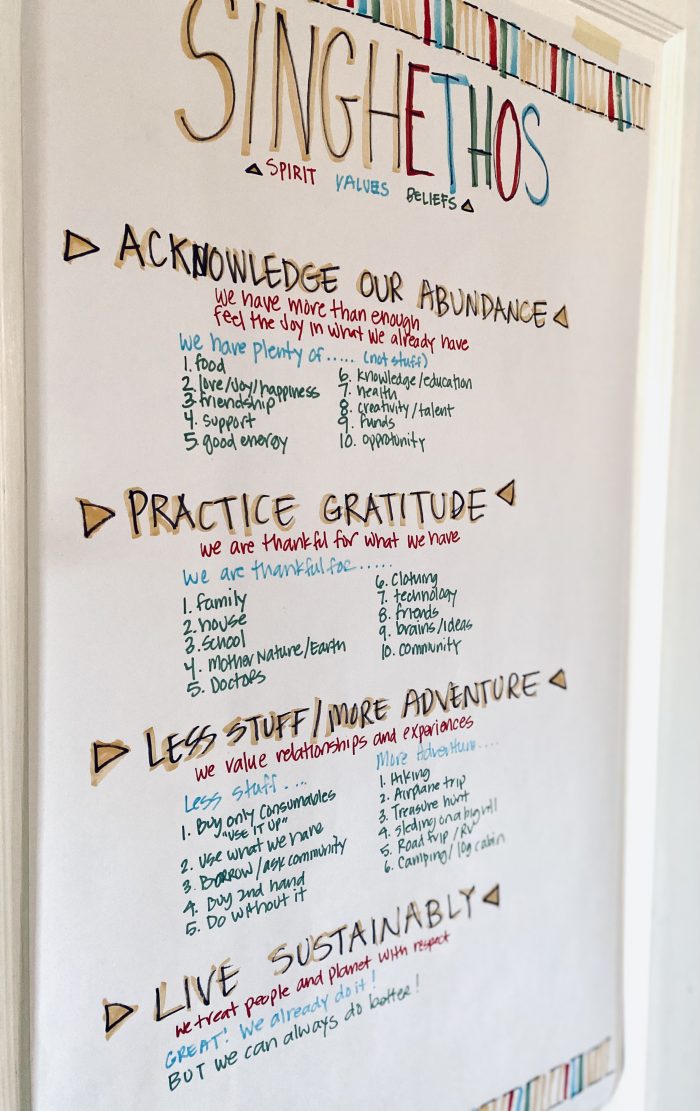 SINGHETHOS
SPIRIT VALUES BELIEFS
ACKNOWLEDGE OUR ABUNDANCE
we have more than enough
feel the joy in what we already have
we have plenty of..... (not stuff)
1. food
2. love/joy/happiness
3. friendship
4. support
5. good energy
6. knowledge/education
7. health
8. creativity/talent
9. funds
10. opprotunity
PRACTICE GRATITUDE
we are thankful for what we have
we are thankful for.....
1. family
2. house
3. school
4. Mother Nature/Earth
5. Doctors
6. Clothing
7. technology
8. friends
9. brains/ideas
10. community
LESS STUFF/MORE ADVENTURE
we value relationships and experiences
Less stuff....
1. Buy only consumables
"USE IT UP"
2. use what we have
3. Borrow/ask community
4. Buy 2nd hand
5. Do without it
More Adventure....
1. Hiking
2. Airplane trip
3. Treasure hunt
4. Sleding on a big hill
5. Road trip/RV
6. Camping/log cabin
LIVE SUSTAINABLY
we treat people and planet with respect
GREAT! We already do it!
BUT we can always do better!